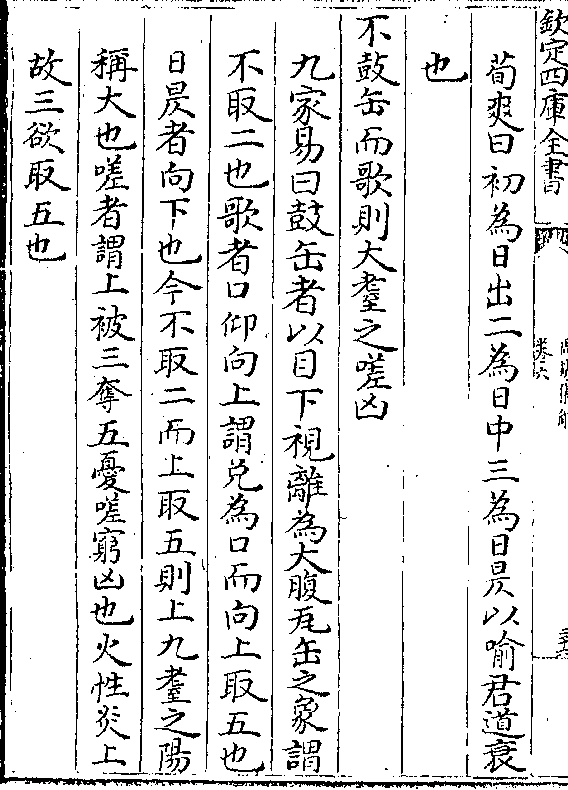 欽定四庫全書
卷六
荀爽曰初為日出二為日中三為日昃以喻君道衰
也
不鼓缶而歌則大耋之嗟凶
九家易曰鼓缶者以目下視離為大腹瓦缶之象謂
不取二也歌者口仰向上謂兌為口而向上取五也
日昃者向下也今不取二而上取五則上九耋之陽
稱大也嗟者謂上被三奪五憂嗟窮凶也火性炎上
故三欲取五也